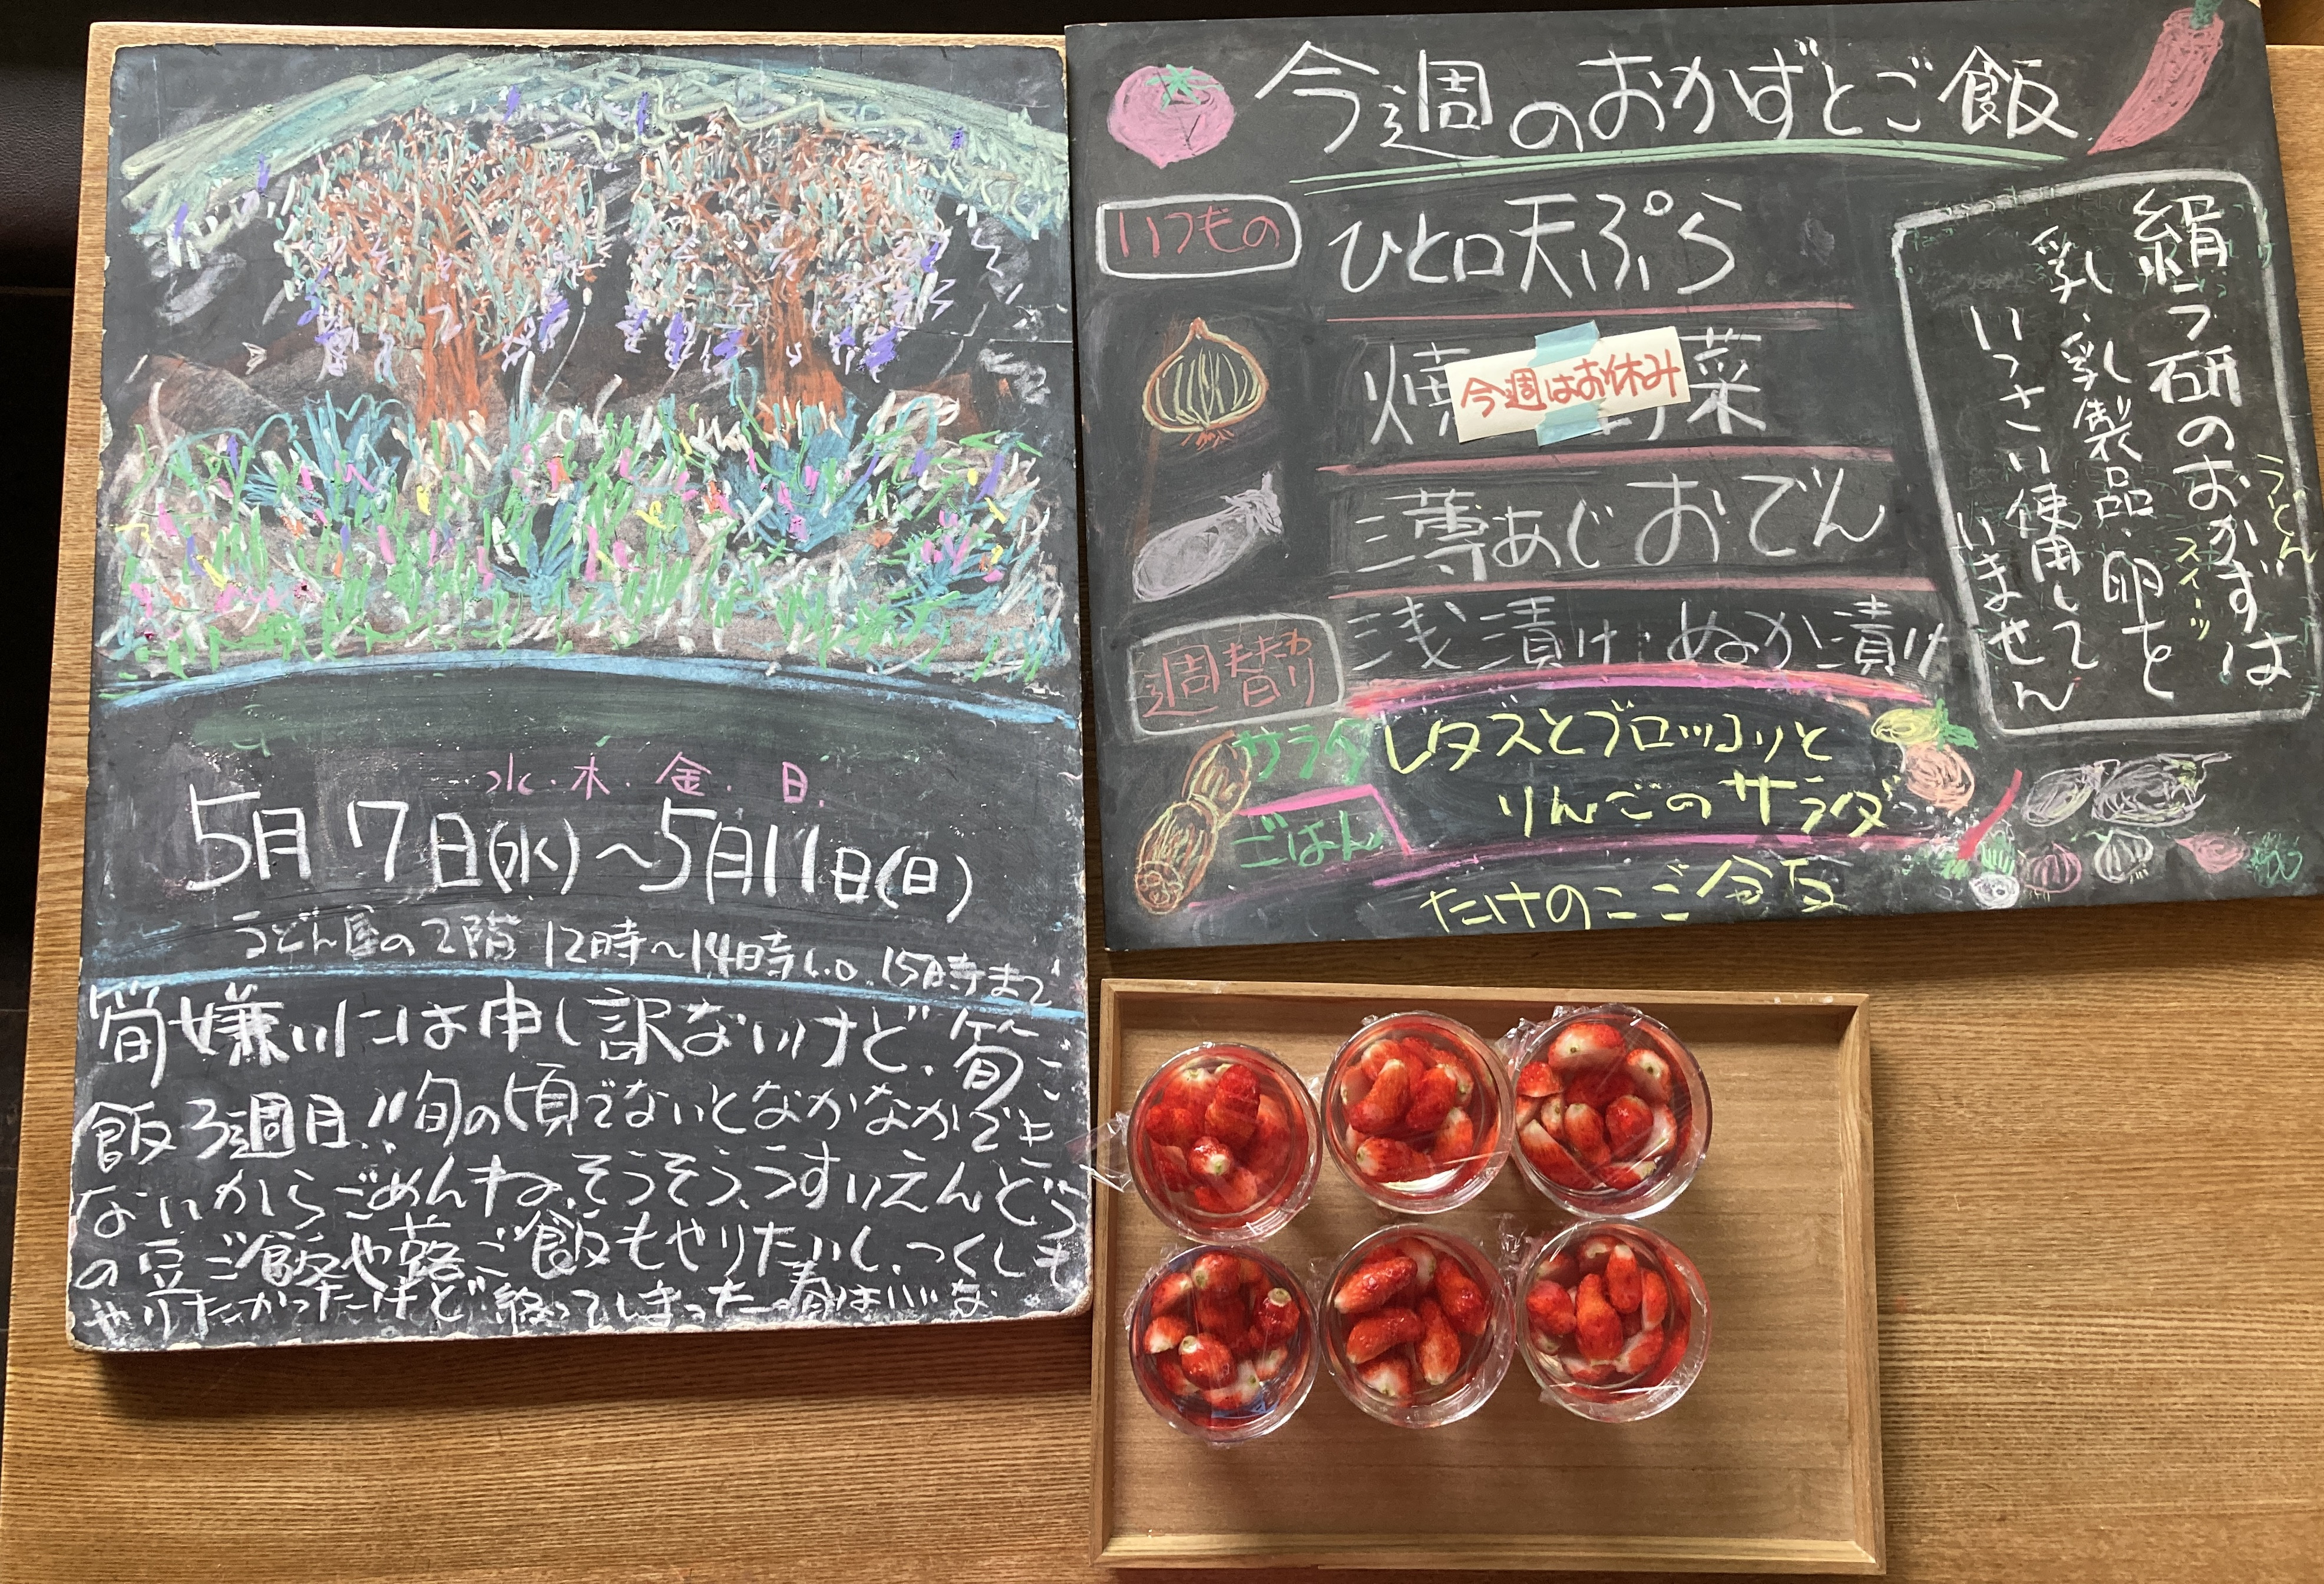 水・木・金・日
5月7日(水)〜5月11日(日)
うどん屋の2階 12時〜14時L.O. 15時まで
筍嫌いには申し訳ないけど、筍ご
飯3週目!!旬の頃でないとなかなかでき
ないからごめんね。そうそう、うすいえんどう
の豆ご飯や蕗ご飯もやりたいし、つくしも
やりたかったけど終ってしまった…春はいいな
今週のおかずとご飯
いつもの
ひと口天ぷら
焼 菜
今週はお休み
薄あじおでん
浅漬け・ぬか漬け
週替り
かわ
サラダ
レタスとブロッコリと
りんごのサラダ
ごはん
たけのこご飯
絹う研のおかずは
うどん
スイーツ
乳、乳製品、卵を
いっさい使用して
いません